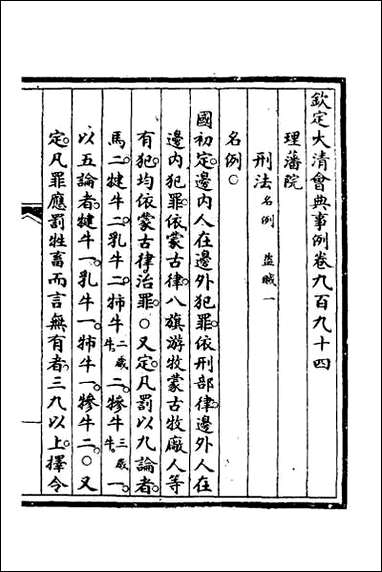 欽定大清會典事例卷九百九十四
理藩院
刑法名例 盜賊一
名例○
國初定。邊內人在邊外犯罪。依刑部律。邊外人在
邊內犯罪。依蒙古律。八旗游牧蒙古牧廠人等
有犯。均依蒙古律治罪。○又定。凡罰以九論者。
馬二犍牛二乳牛二㸬牛二歲牛二。犙牛三歲牛一。
以五論者。犍牛一。乳牛一。㸬牛一。犙牛二。○又
定。凡罪應罰牲畜而言無有者。三九以上。擇令